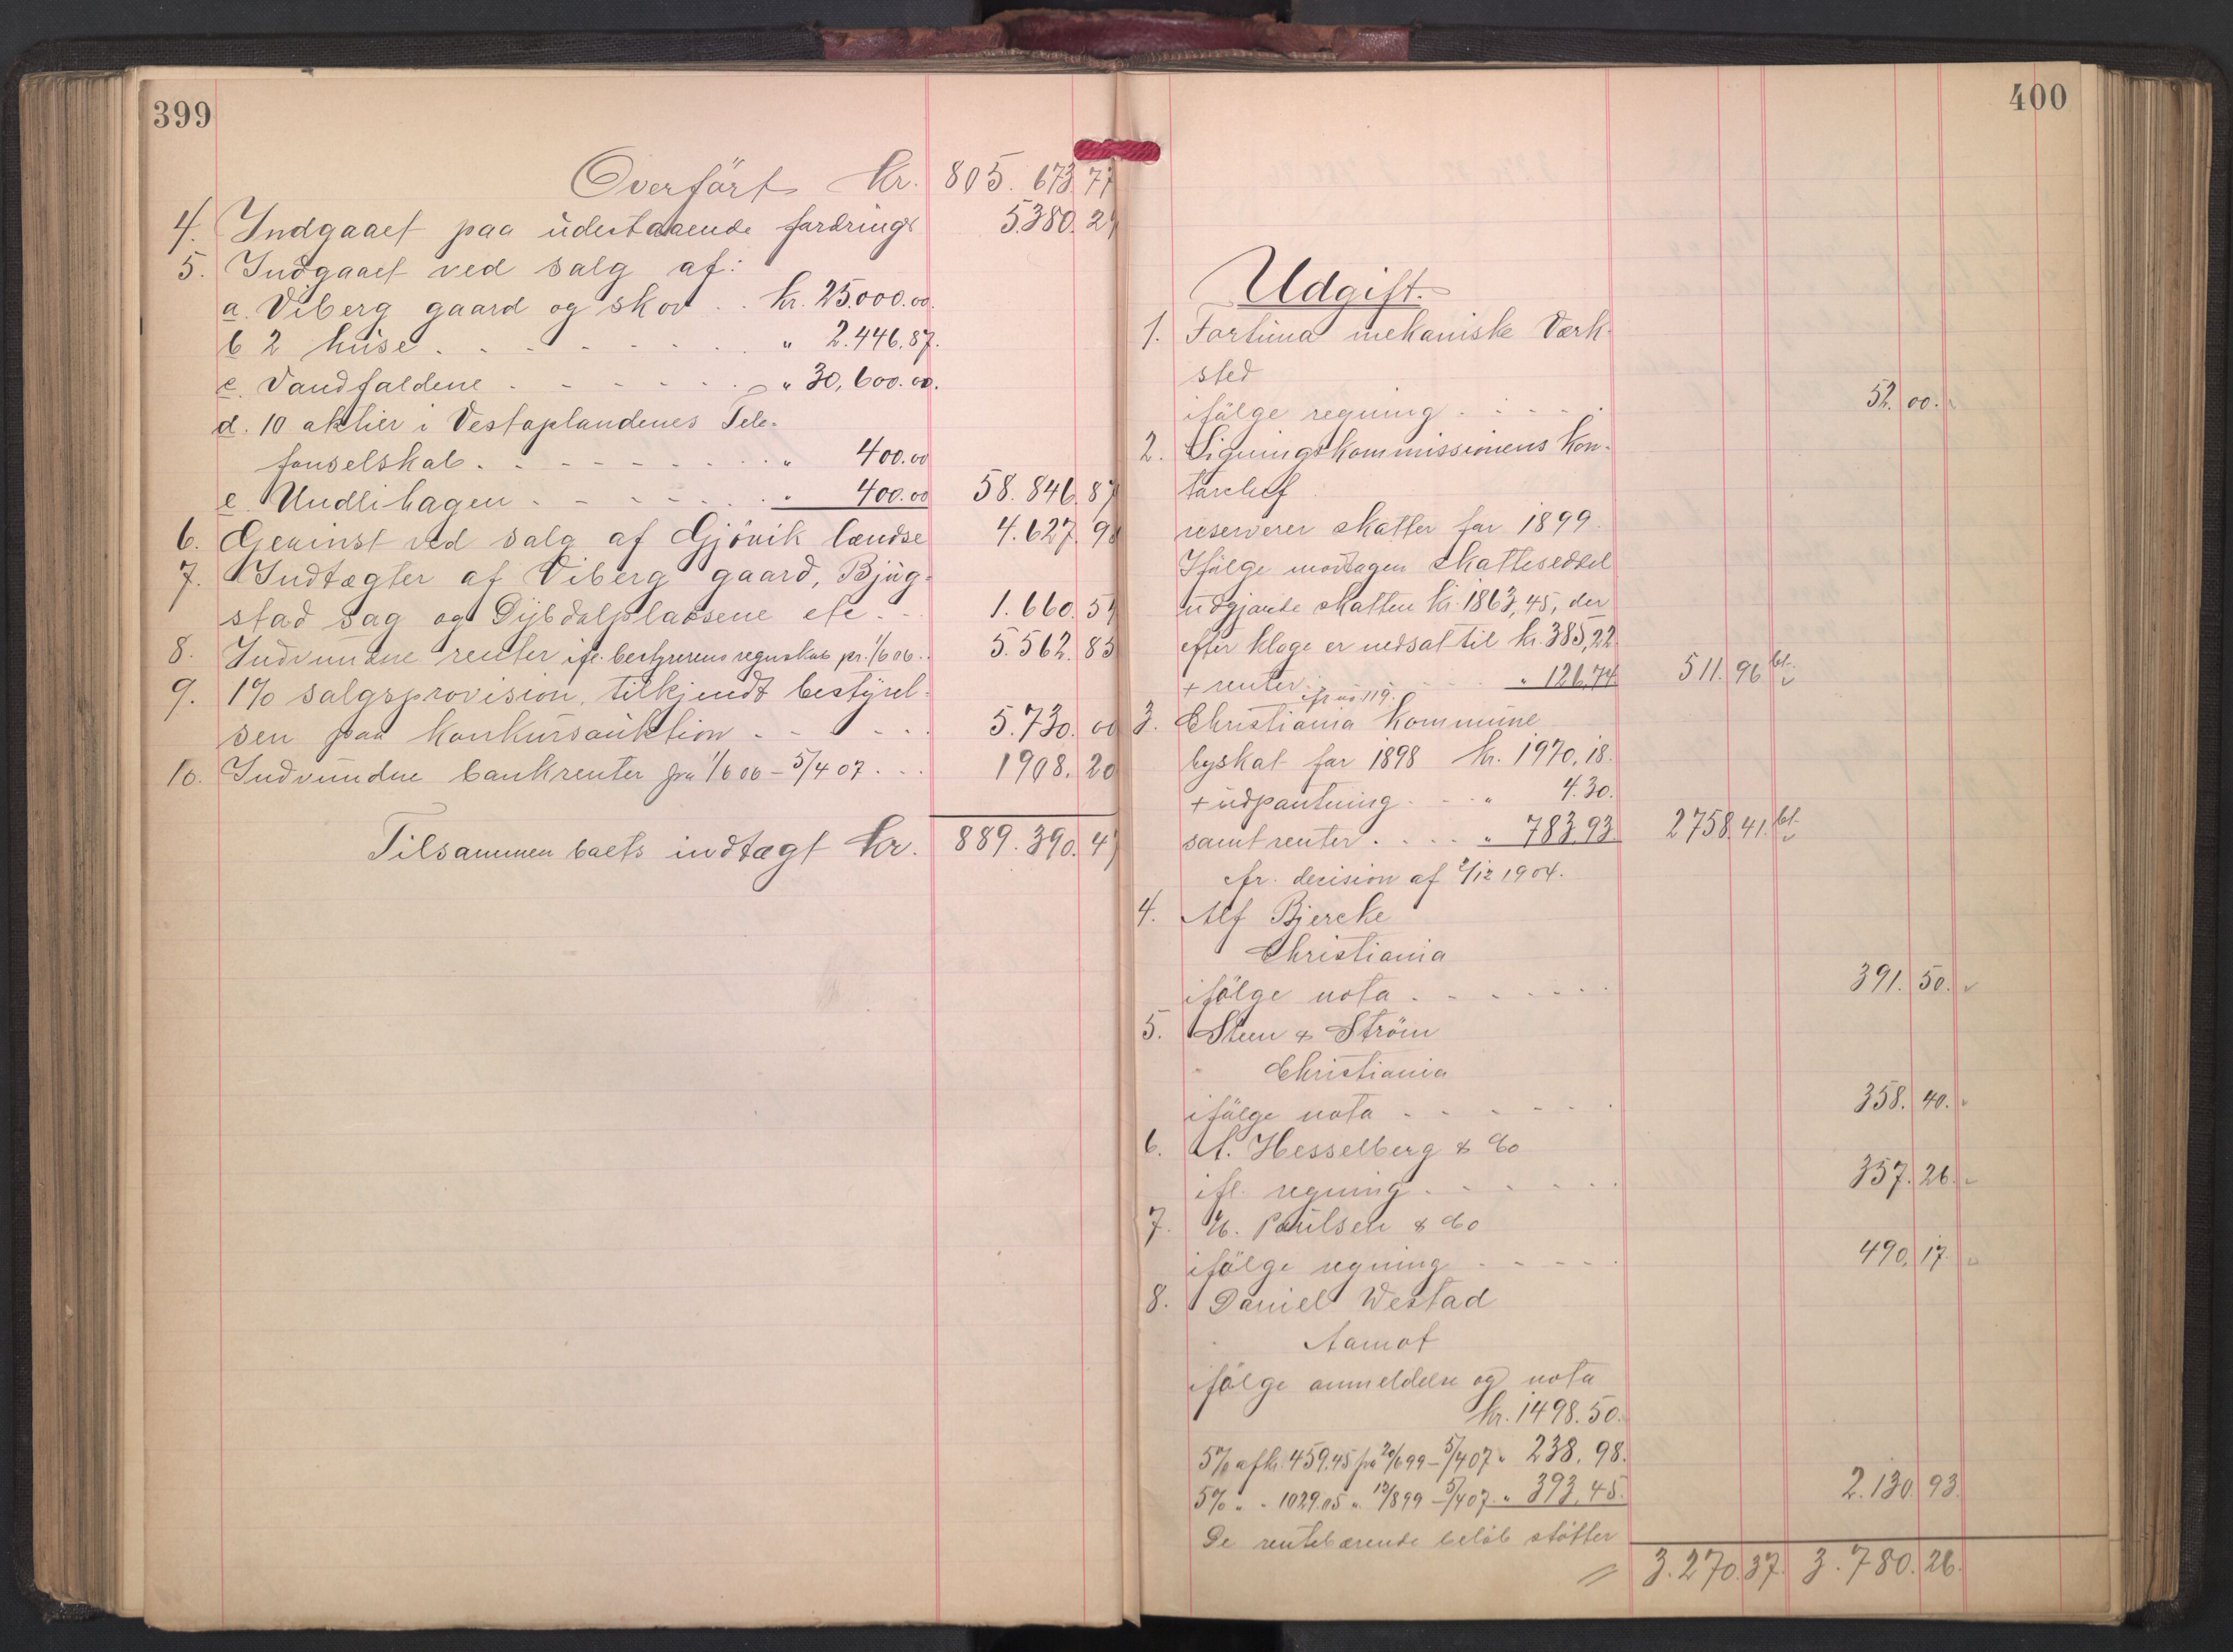 399
Overført Kr. 805.673.77
4. Indgaaet paa udestaaende fordringer 5.380.29
5. Indgaaet ved salg af:
a. Viberg gaard og skov . . kr. 25.000.00.
b 2 huse . . . . . . . . . " 2.446.87.
c. Vandfaldene . . . . . . . " 30,600.00.
d. 10 aktier i Vestoplandenes Tele-
fonselskab . . . . . . . . . " 400.00
e. Undlihagen . . . . . . . " 400.00 58.846.87
6. Gevinst ved salg af Gjövik lændse 4.627.98
7. Indtægter af Viberg gaard, Bjug-
stad sag og Dybdalpladsene etc . . 1.660.54
8. Indvundne renter ifl. bestyrerens regnskab pr. 1/6 06 . . 5.562.83
9. 1% salgsprovision, tilkjendt bestyrel-
sen paa konkursauktion . . . . . 5.730.00
10. Indvundne bankrenter fra 1/6 06 – 5/4 07 . . . 1908.20
Tilsammen boets indtægt Kr. 889.390.47
400
Udgift.
1. Fortuna mekaniske Værk-
sted
ifølge regning . . . . . 52.00.
2. Ligningskommissionens Kon-
torchef
reserverer skatter for 1899.
Ifølge modtagen skatteseddel
udgjorde skatten kr. 1863,45, der
efter klage er nedsat til kr. 385,22
+ renter . . . . " 126,74 511.96 bt.
cfr. no 119.
3. Christiania Kommune
byskat for 1898 kr. 1970.18.
+ udpantning . . . " 4.30.
samt renter . . . . " 783.93. 2758.41. bt.
cfr. decision af 2/12 1904.
4. Alf Bjercke
Christiania
ifølge nota . . . . . . . 391.50.
5. Steen & Ström
Christiania
ifølge nota . . . . . . 358.40.
6. A. Hesselberg & Co
ifl. regning . . . . . . 357.26.
7. N. Paulsen & Co
ifølge regning . . . . . 490.17
8. Daniel Westad
Aamot
ifølge anmeldelse og nota
Kr. 1498.50.
5% af kr. 459.45 fra 20/6 99 – 5/4 07 " 238.98.
5% " " 1029.05 " 12/8 99 – 5/4 07 " 393.45. 2.130.93.
De rentebærende beløb støtter
3.270.37. 3.780.26.